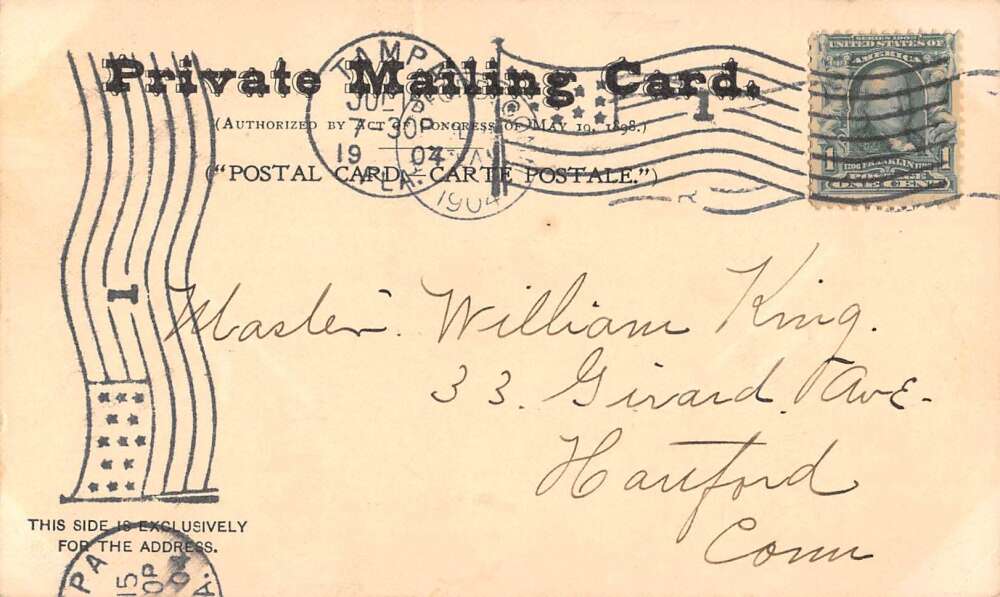 Private Mailing Card.
(AUTHORIZED BY ACT OF CONGRESS OF MAY 19, 1898.)
("POSTAL CARD, CARTE POSTALE.")
TAMPA
JUL
7-30P
19 04
FLA.
1904
1
SERIES 1902
UNITED STATES OF
AMERICA
1706 FRANKLIN 1790
POSTAGE
1 ONE CENT 1
Master. William King.
33. Girard. Ave.
Hartford
Conn
1
THIS SIDE IS EXCLUSIVELY
FOR THE ADDRESS.
PA
15
0P
04
A.